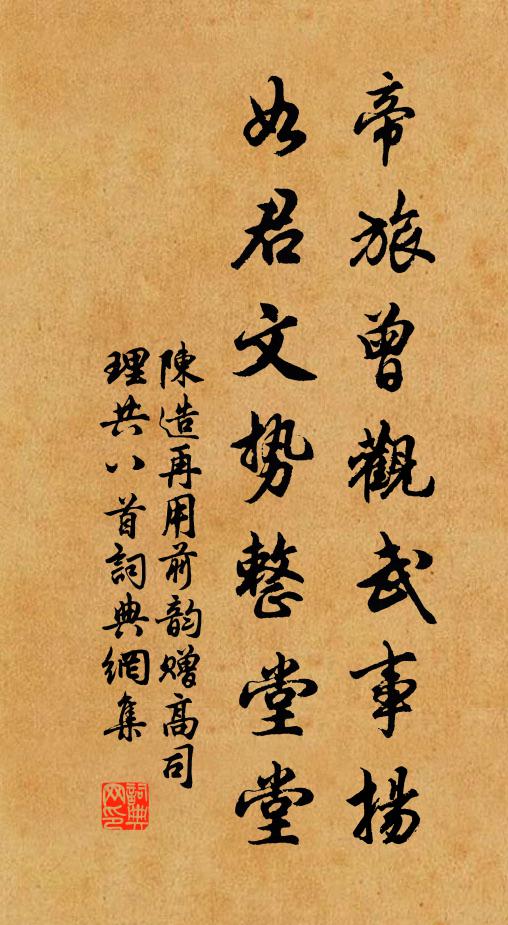 帝旅曾觀武事揚
如君文势整堂堂
陳造再用前韵贈高司
理共八首詞典網集
詞典网印